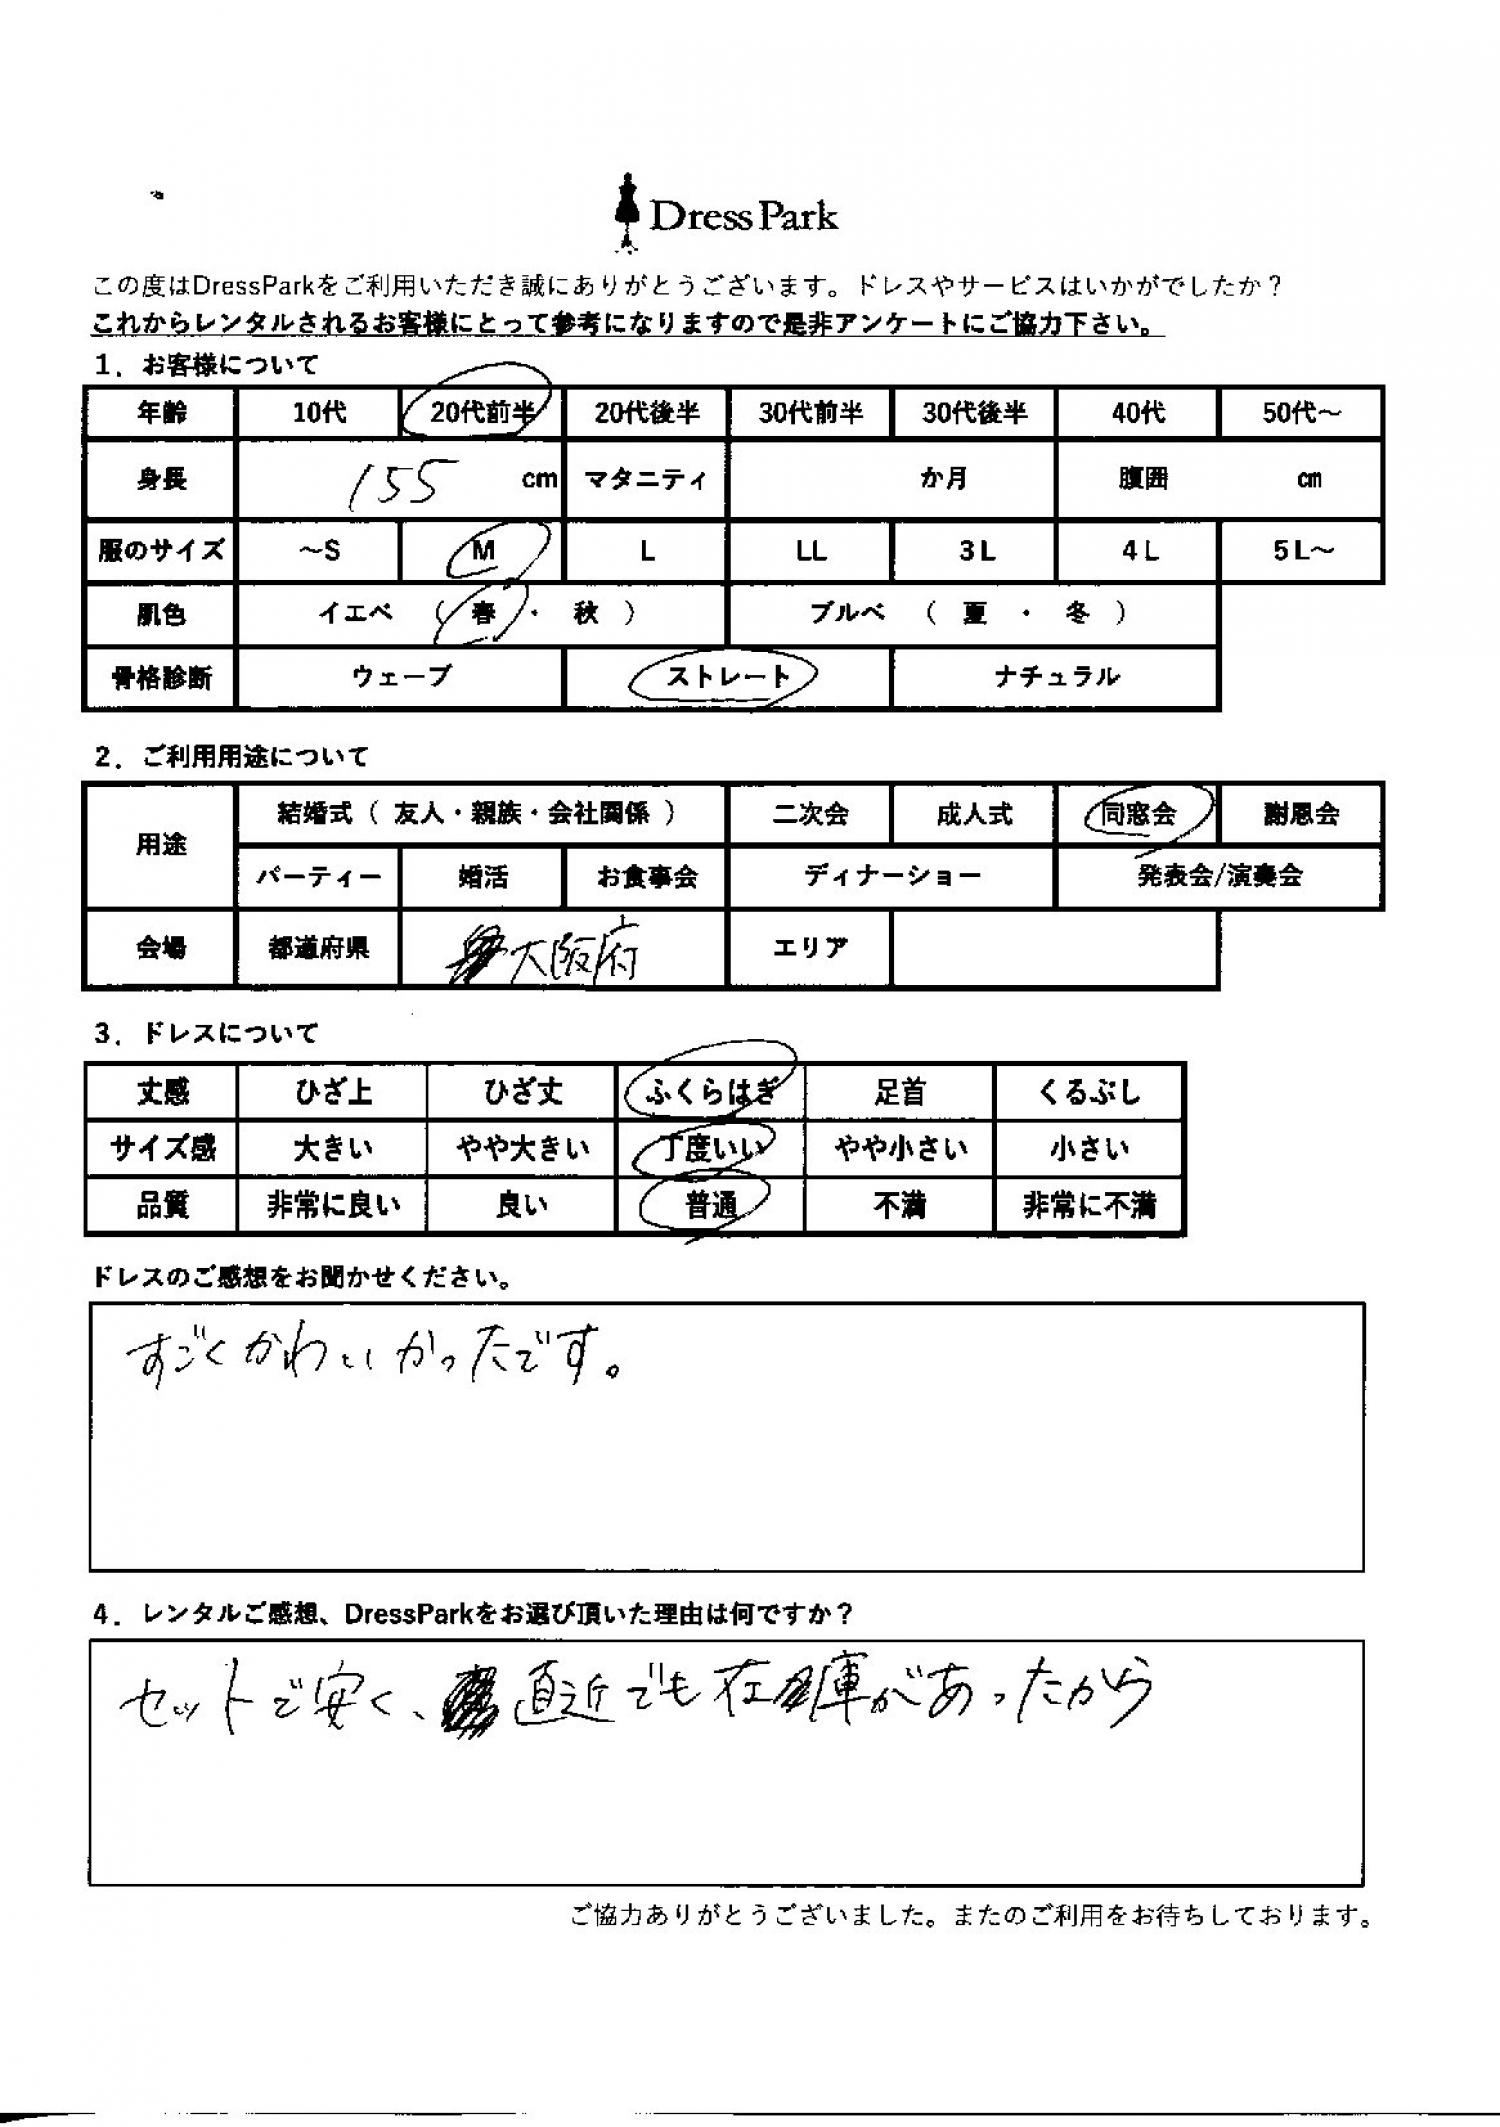 Dress Park
この度はDressParkをご利用いただき誠にありがとうございます。ドレスやサービスはいかがでしたか？
これからレンタルされるお客様にとって参考になりますので是非アンケートにご協力下さい。
1．お客様について
年齢 10代 20代前半 20代後半 30代前半 30代後半 40代 50代～
身長 155 cm マタニティ か月 腹囲 ㎝
服のサイズ ～S M L LL 3L 4L 5L～
肌色 イエベ （ 春 ・ 秋 ） ブルベ （ 夏 ・ 冬 ）
骨格診断 ウェーブ ストレート ナチュラル
2．ご利用用途について
用途 結婚式（ 友人・親族・会社関係 ） 二次会 成人式 同窓会 謝恩会
パーティー 婚活 お食事会 ディナーショー 発表会/演奏会
会場 都道府県 大阪府 エリア
3．ドレスについて
丈感 ひざ上 ひざ丈 ふくらはぎ 足首 くるぶし
サイズ感 大きい やや大きい 丁度いい やや小さい 小さい
品質 非常に良い 良い 普通 不満 非常に不満
ドレスのご感想をお聞かせください。
すごくかわいかったです。
4．レンタルご感想、DressParkをお選び頂いた理由は何ですか？
セットで安く、直近でも在庫があったから
ご協力ありがとうございました。またのご利用をお待ちしております。